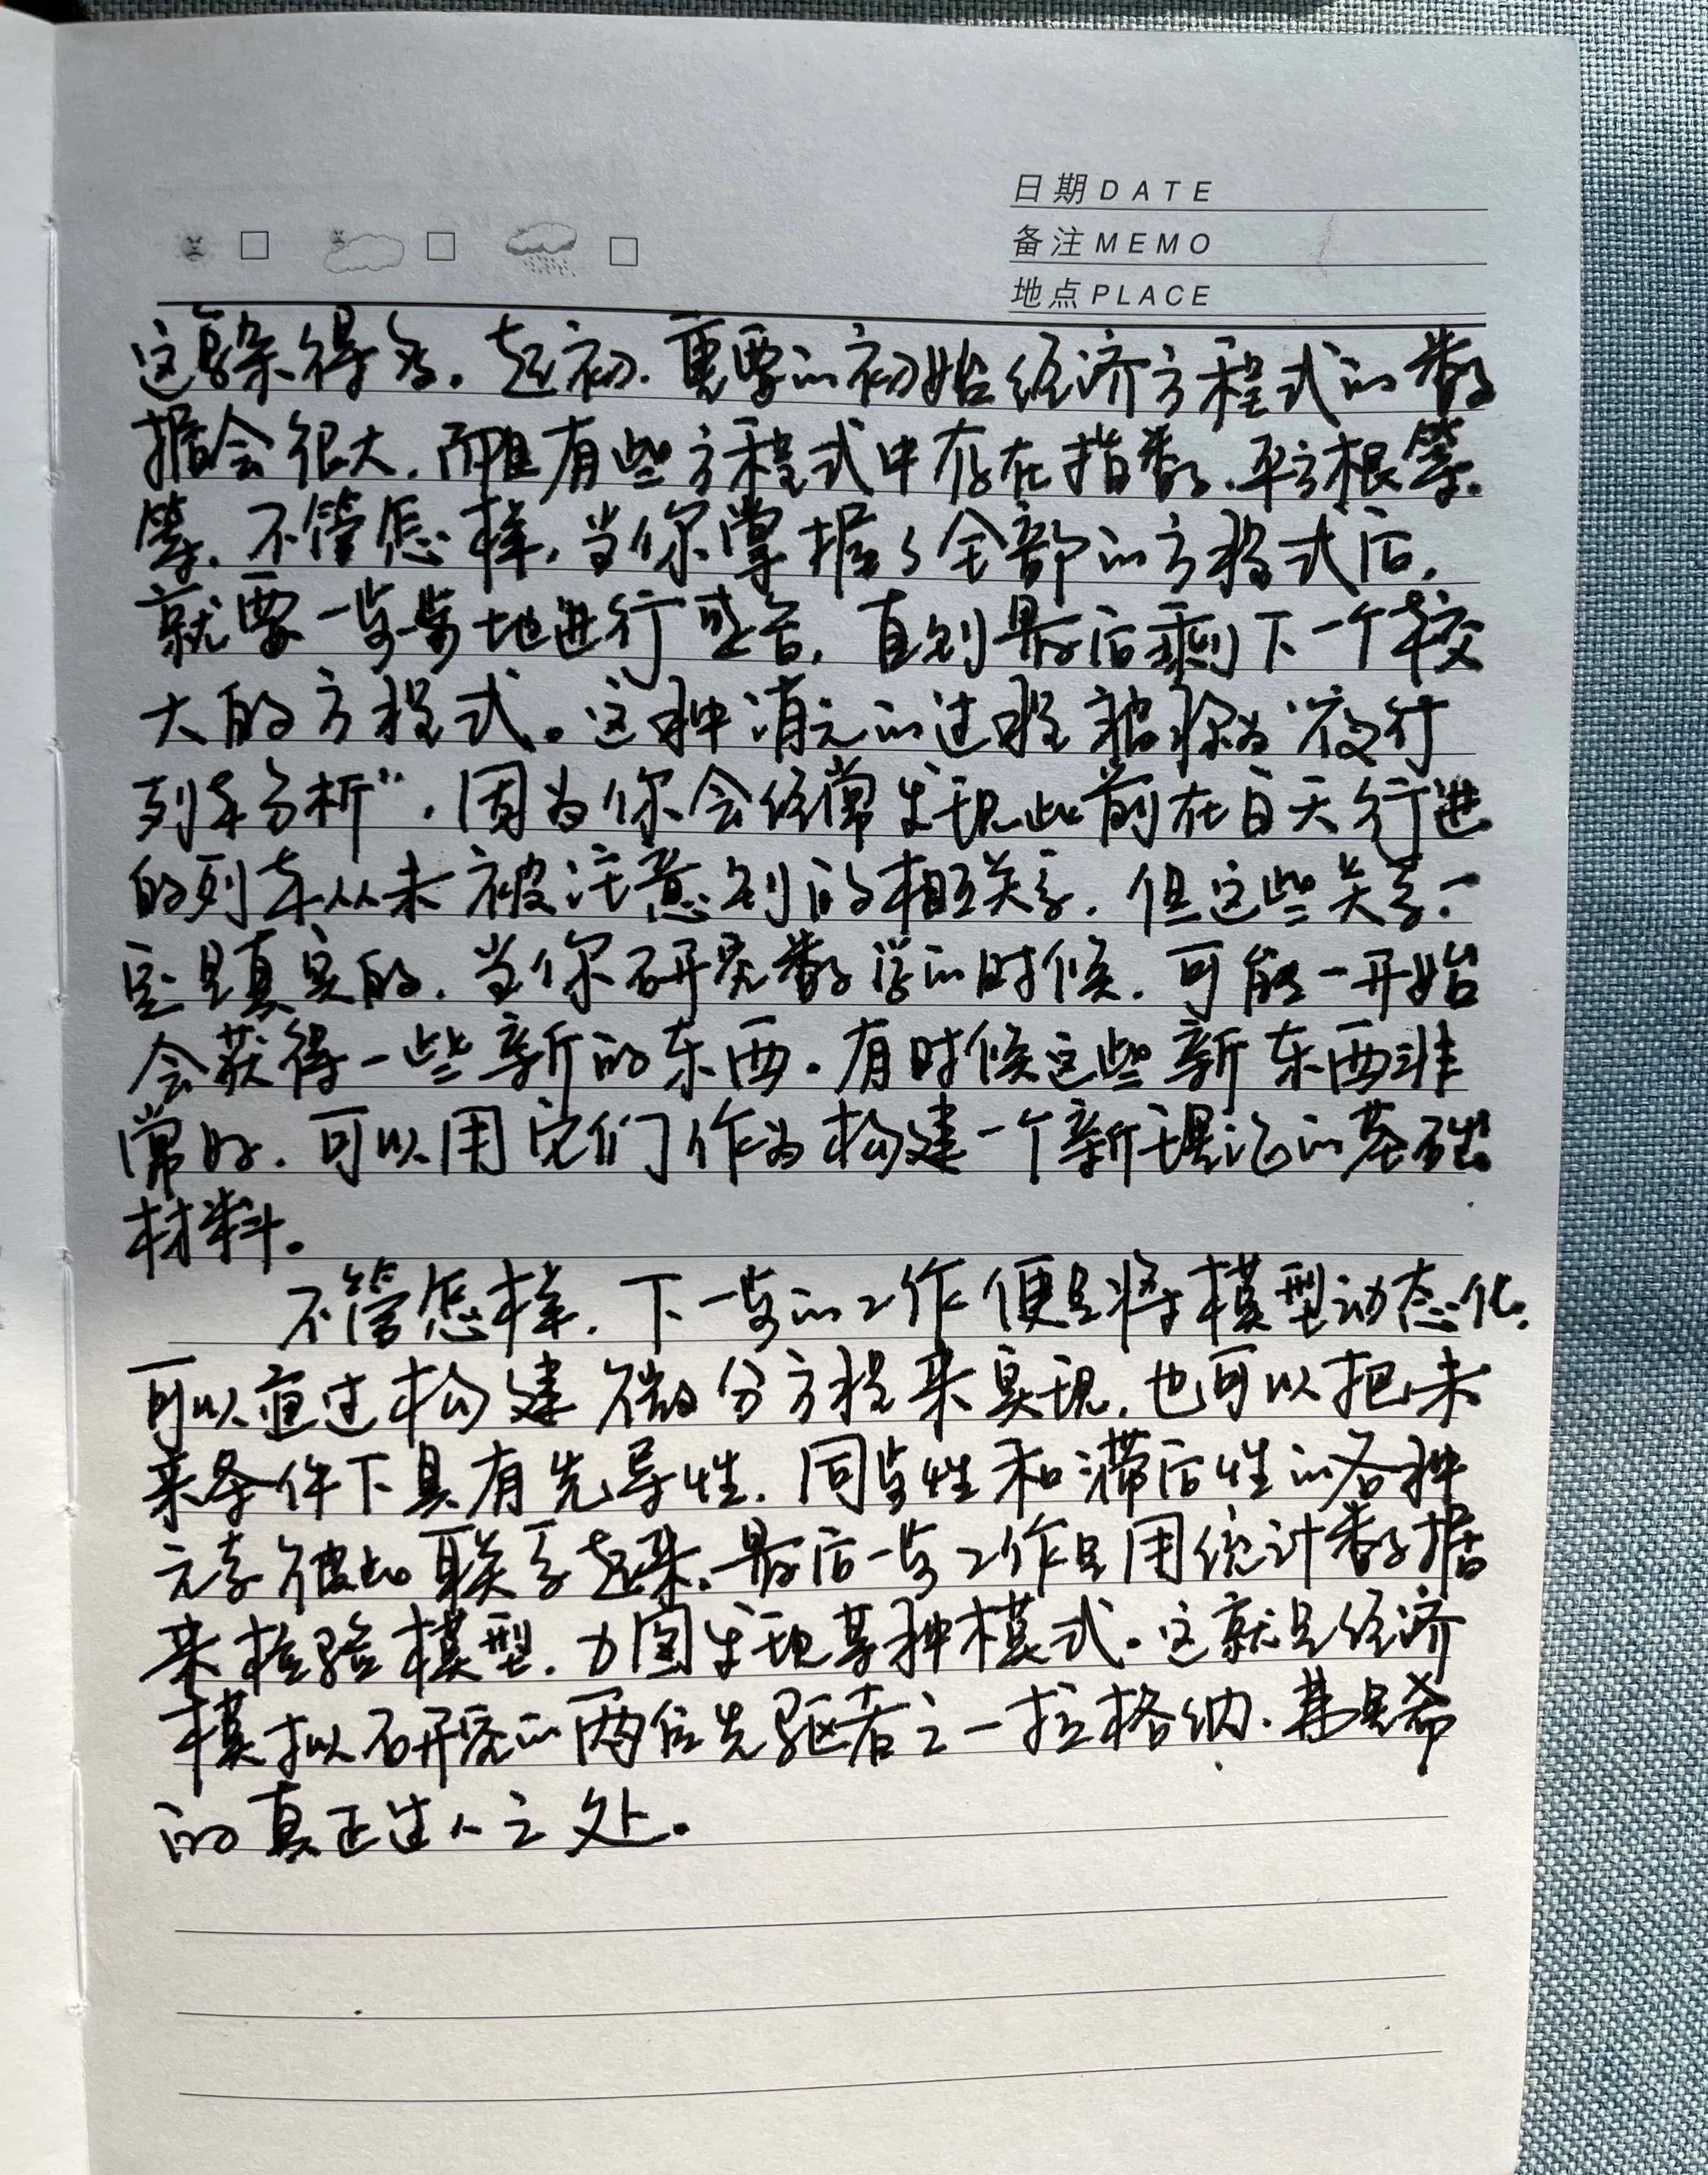 日期 DATE
备注 MEMO
地点 PLACE
这复杂得多。起初，需要的初始经济方程式的数
据会很大，而且有些方程式中存在指数、平方根等
等。不管怎样，当你掌握了全部的方程式后，
就要一步步地进行整合，直到最后剩下一个较
大的方程式。这种消元的过程被称为“夜行
列车分析”，因为你会经常发现此前在白天行进
的列车从未被注意到的相互关系，但这些关系一
定是真实的，当你研究数学的时候，可能一开始
会获得一些新的东西。有时候这些新东西非
常好，可以用它们作为构建一个新理论的基础
材料。
不管怎样，下一步的工作便是将模型动态化，
可以通过构建微分方程来实现，也可以把未
来条件下具有先导性、同步性和滞后性的各种
元素彼此联系起来。最后一步工作是用统计数据
来检验模型，力图发现某种模式。这就是经济
模拟研究的两位先驱者之一拉格纳·弗里希
的真正过人之处。